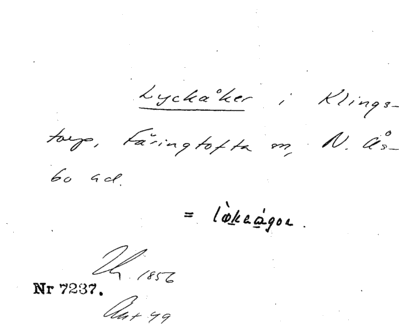 Lyckåker i Klings-
torp, Färingtofta sn, N. Ås-
bo hd.
= 
1856
Nr 7237.
49